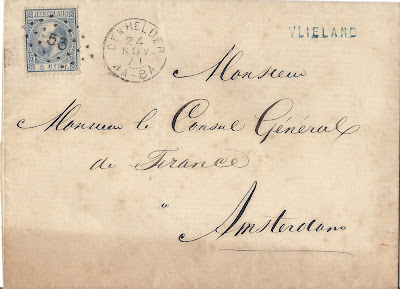 NEDERLAND
58
DEN HELDER
24
NOV
71
VLIELAND
Monsieur
Monsieur le Consul Général
de France
à
Amsterdam